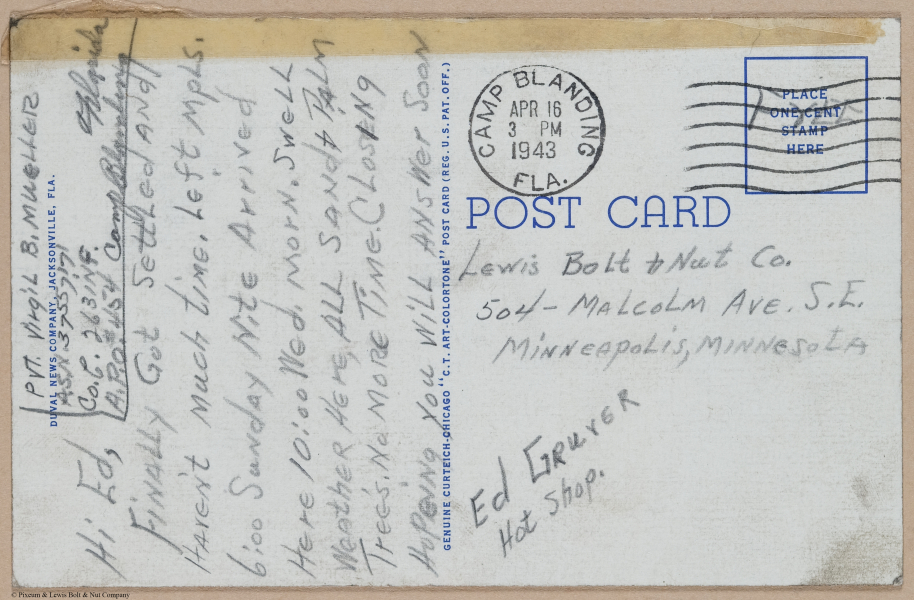 PVT. Virgil B. Mueller
A.S.N. 37557171
Co. C. 263 INF.
A.P.O. #454 Camp Blanding
Florida
Hi Ed,
Finally Got Settled and
Haven't Much time. Left Mpls.
6:00 Sunday Nite Arrived
Here 10:00 Wed. Morn. Swell
Weather Here, All Sand & Palm
Trees. No More Time. Closing
Hopeing You Will Answer Soon
DUVAL NEWS COMPANY, JACKSONVILLE, FLA.
GENUINE CURTEICH-CHICAGO "C.T. ART-COLORTONE" POST CARD (REG. U.S. PAT. OFF.)
CAMP BLANDING
APR 16
3 PM
1943
FLA.
PLACE
ONE CENT
STAMP
HERE
Free
POST CARD
Lewis Bolt & Nut Co.
504- Malcolm Ave. S.E.
Minneapolis, Minnesota
Ed Gruver
Hot Shop.
© Pixeum & Lewis Bolt & Nut Company